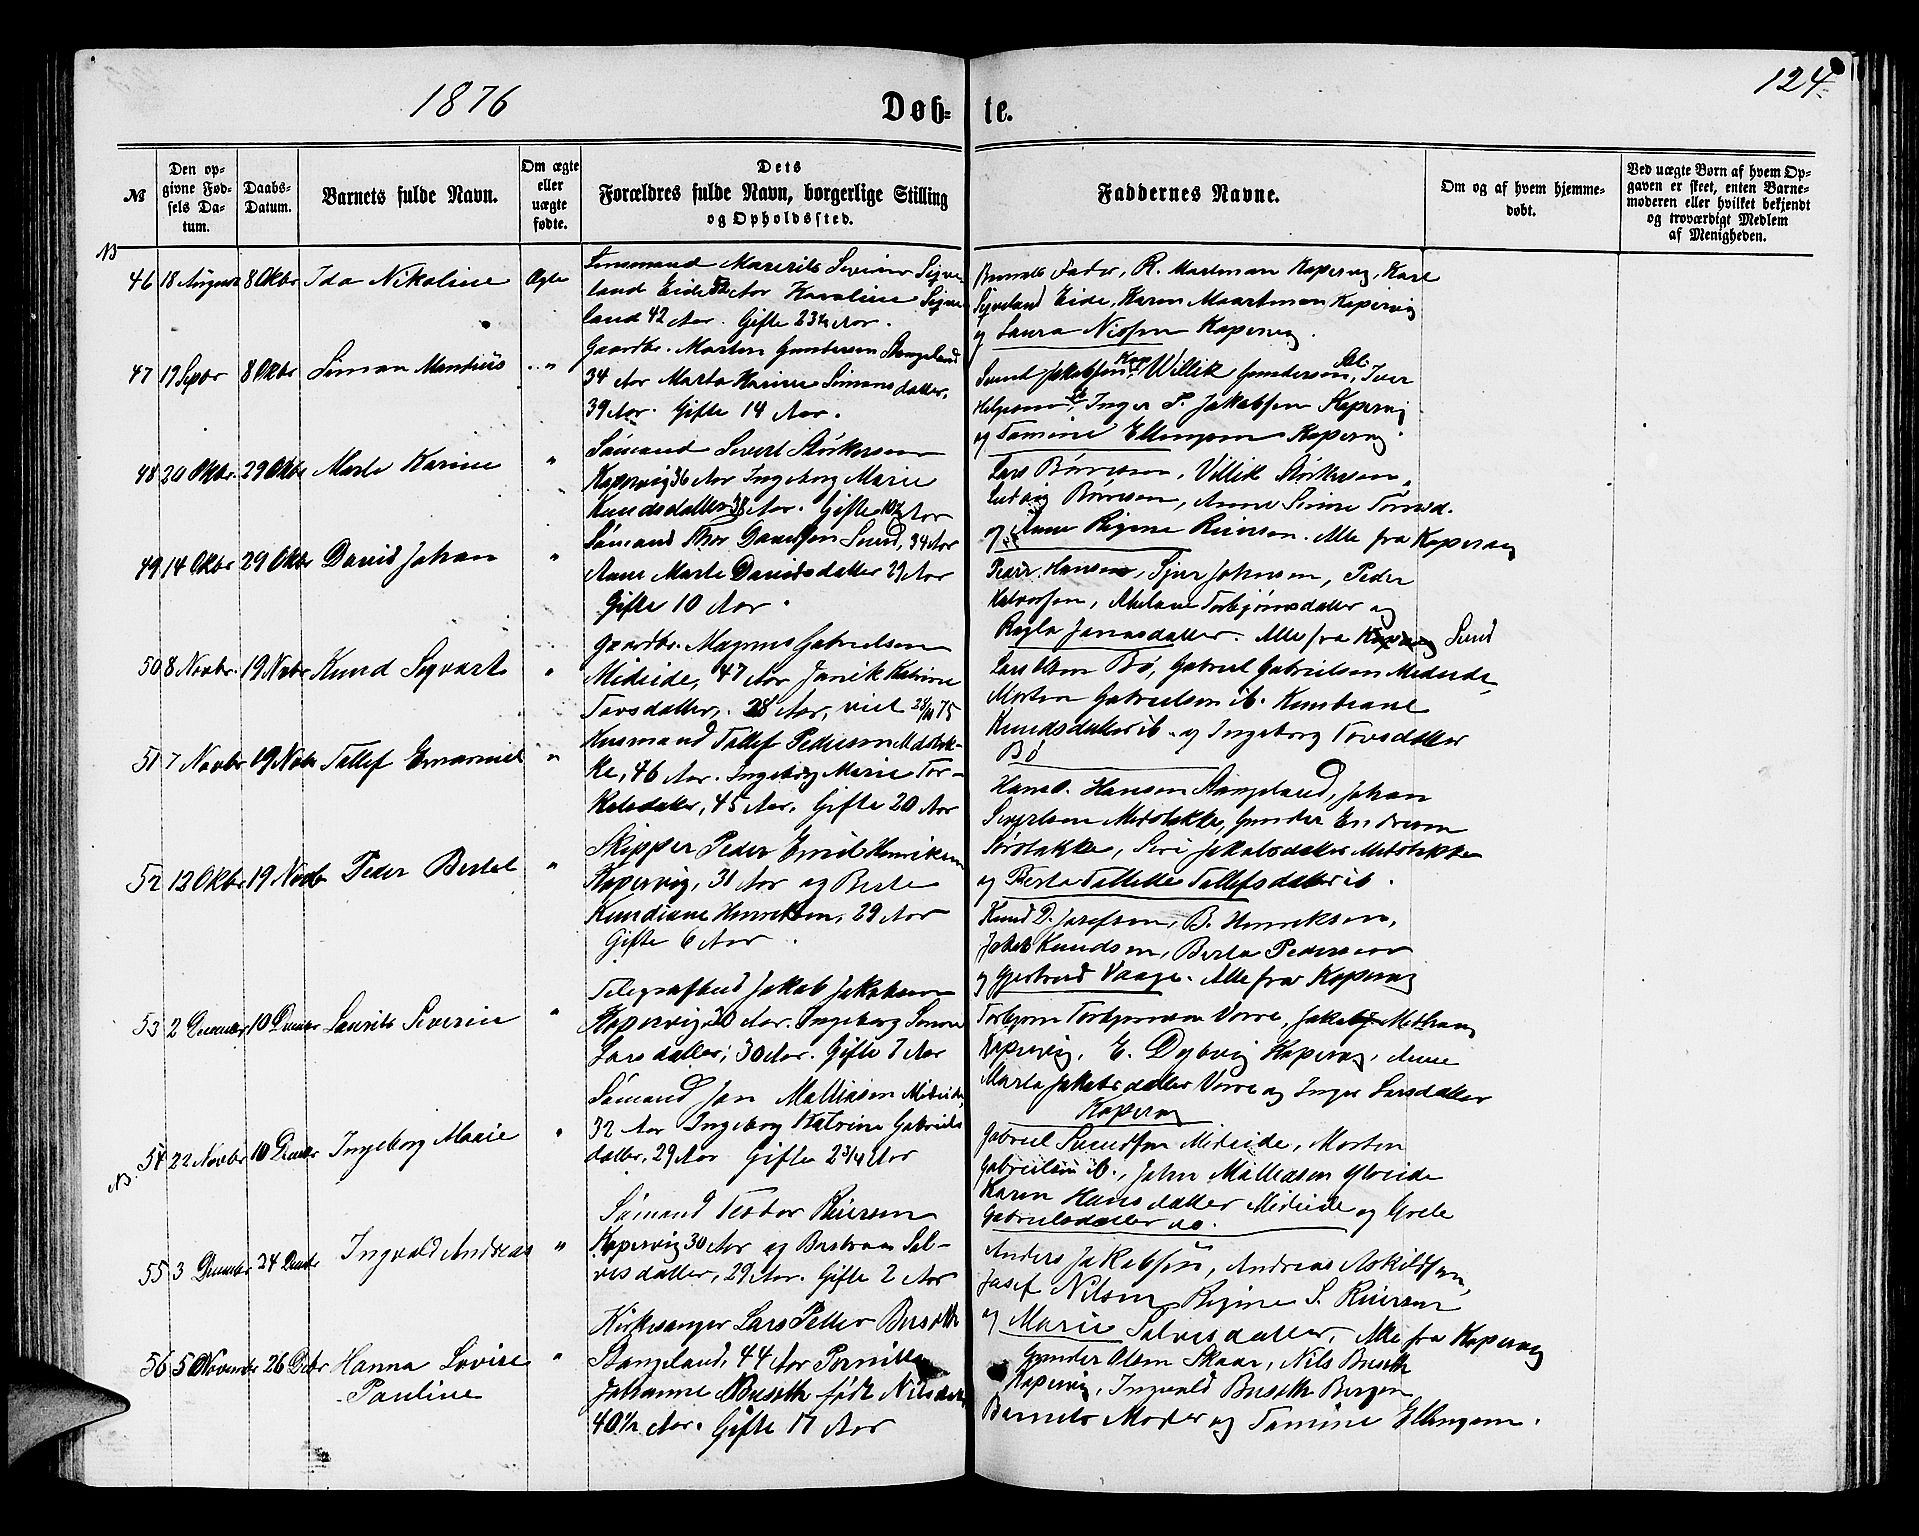 1876
Døb-
te.
124.
No
Den op-
givne Fød-
sels Da-
tum.
Daabs-
Datum.
Barnets fulde Navn.
Om ægte
eller
uægte
fødte.
Dets
Forældres fulde Navn, borgerlige Stilling
og Opholdssted.
Faddernes Navne.
Om og af hvem hjemme-
døbt.
Ved uægte Børn af hvem Op-
gaven er skeet, enten Barne-
moderen eller hvilket bekjendt
og troværdigt Medlem
af Menigheden.
NB
46 18 August 8 Oktbr Ida Nikoline Ægte
land Eide Aar Karoline
land 42 Aar. Gifte 23½ Aar.
Barnets Fader, R. Kopervig, Karl
Eide, Karen Kopervig
og Laura Kopervig.
47 19 Septbr 8 Oktbr Simon
Gaardbr. Morten Gundersen Stangeland
34 Aar Marta Karine Simonsdatter,
39 Aar. Gifte 14 Aar.
Svend Jakobsen Kop Willik Gundersen, Iver
Helgesen, Inger P. Jakobsen Kopervig
og Tomine Ellingsen Kopervig.
48 20 Oktbr. 29 Oktbr Marte Karine "
Sømand Sivert Størkersen
Kopervig 36 Aar Ingeborg Marie
Knudsdatter 38 Aar. Gifte Aar
Lars Børresen, Villik Størkersen,
Ludvig Børresen, Anne Sirine
og Anne Regine Reiersen. Alle fra Kopervig
49 14 Oktbr 29 Oktbr David Johan "
Sømand Thor Davidsen Sund, 34 Aar
Anne Marte Davidsdatter 29 Aar
Gifte 10 Aar.
Peder Hansen, Sjur Johnsen, Peder
Halvorsen, Torbjørnsdatter og
Jonasdatter. Alle fra Sund
50 8 Novbr. 19 Novbr Knud Sigvart "
Gaardbr. Magnus Gabrielsen
Mideide, 47 Aar Katrine
Tovsdatter, 28 Aar, viet 75
Lars Olsen Bø, Gabriel Gabrielsen Mideide,
Morten Gabrielsen ib.
Knudsdatter ib. og Ingeborg Tovsdatter
Bø
51 7 Novbr 19 Novbr Tallef Emanuel "
Husmand Tallef Pedersen Midstok-
ke, 46 Aar. Ingeborg Marie Tor-
kelsdatter, 45 Aar. Gifte 20 Aar
Hans O. Hansen Stangeland, Johan
Sivertsen Midstokke, Gunder Endresen
Sørstokke, Siri Jakobsdatter Midstokke
og Berta Tallette Tallefsdatter ib.
52 12 Oktbr 19 Novb Peder Bertel "
Skipper Peder Emil Henriksen
Kopervig, 31 Aar og Berte
Kundiane Henriksen, 29 Aar
Gifte 6 Aar.
Knud D. Josefsen, B. Henriksen,
Jakob Knudsen, Berta Pedersen
og Gjertrud Vaage. Alle fra Kopervig
53 2 December 10 Decmbr Laurits Severin "
Telegrafbud Jakob Jakobsen
Kopervig 30 Aar. Ingeborg
Larsdatter, 30 Aar. Gifte 7 Aar
Torbjørn Torbjørnsen Vorre,
Kopervig, E. Dybvig Kopervig, Anne
Marta Jakobsdatter Vorre og Inger Larsdatter
Kopervig
54 22 Novbr 10 Decmbr Ingeborg Marie "
NB.
Sømand Jon Mathiasen Mideide,
32 Aar Ingeborg Katrine Gabriels
datter, 29 Aar Gifte 2 3/4 Aar
Gabriel Svendsen Mideide, Morten
Gabrielsen ib., John Mathiasen
Karen Hansdatter Mideide og Grete
Gabrielsdatter do.
55 3 December 24 Decbr Ingvald Andreas "
Sømand Reiersen
Kopervig 30 Aar og Sal-
vesdatter, 29 Aar. Gifte 2 Aar
Anders Jakobsen, Andreas Askildsen,
Josef Nilsen, Regine S. Reiersen
og Marie Salvesdatter, Alle fra Kopervig
56 5 November 26 Decbr Hanna Lovise "
Pauline
Kirkesanger Lars Petter Buseth
Stangeland, 44 Aar Pernille
Johanne Buseth født
40½ Aar. Gifte 17 Aar
Gunder Olsen Skaar, Nils Buseth
Kopervig, Ingvald Buseth Bergen
Barnets Moder og Tomine Ellingsen.